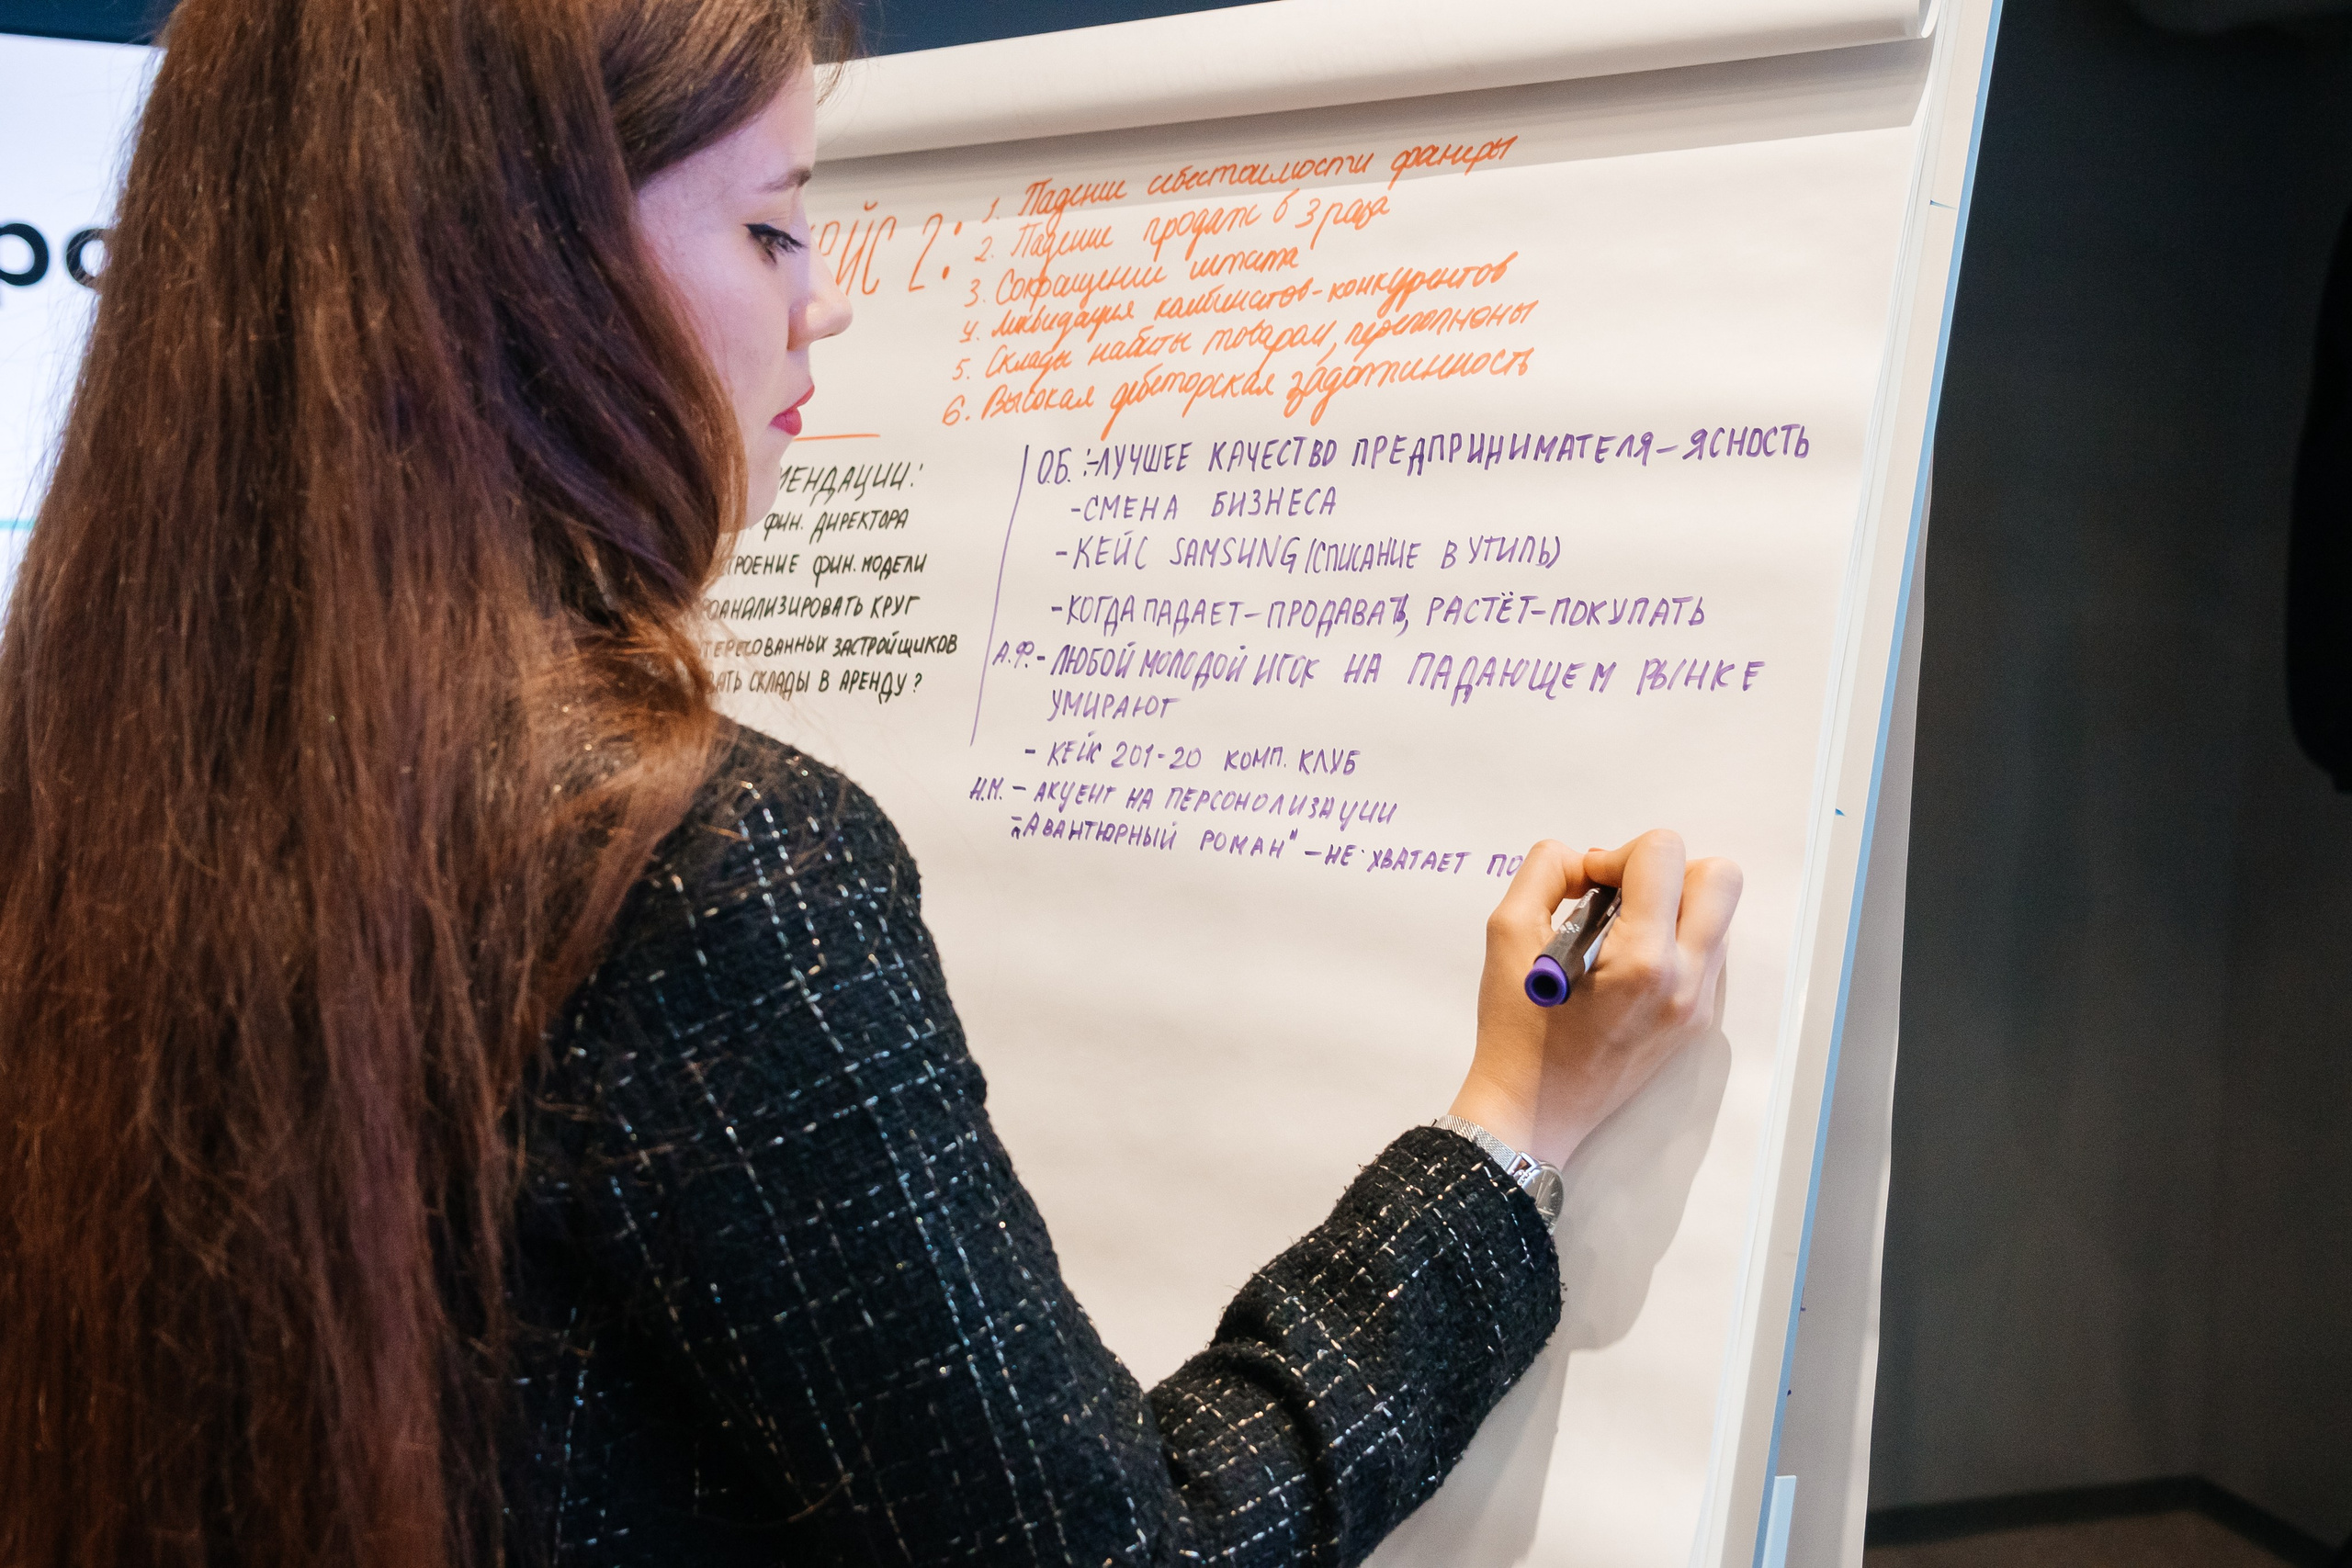 ро
КЕЙС 2:
1. Падение себестоимости фанеры
2. Падение продаж в 3 раза
3. Сокращение штата
4. Ликвидация комбинатов-конкурентов
5. Склады набиты товаром, переполнены
6. Высокая дебеторская задолженность
МЕНДАЦИИ:
ФИН. ДИРЕКТОРА
ТРОЕНИЕ ФИН. МОДЕЛИ
РОАНАЛИЗИРОВАТЬ КРУГ
ТЕРЕСОВАННЫХ ЗАСТРОЙЩИКОВ
ВАТЬ СКЛАДЫ В АРЕНДУ?
О.Б.: -ЛУЧШЕЕ КАЧЕСТВО ПРЕДПРИНИМАТЕЛЯ-ЯСНОСТЬ
-СМЕНА БИЗНЕСА
-КЕЙС SAMSUNG (СПИСАНИЕ В УТИЛЬ)
-КОГДА ПАДАЕТ-ПРОДАВАТЬ, РАСТЁТ-ПОКУПАТЬ
А.Ф.- ЛЮБОЙ МОЛОДОЙ ИГОК НА ПАДАЮЩЕМ РЫНКЕ
УМИРАЮТ
- КЕЙС 201-20 КОМП. КЛУБ
Н.М. - АКЦЕНТ НА ПЕРСОНОЛИЗАЦИИ
- "АВАНТЮРНЫЙ РОМАН" - НЕ ХВАТАЕТ ПО